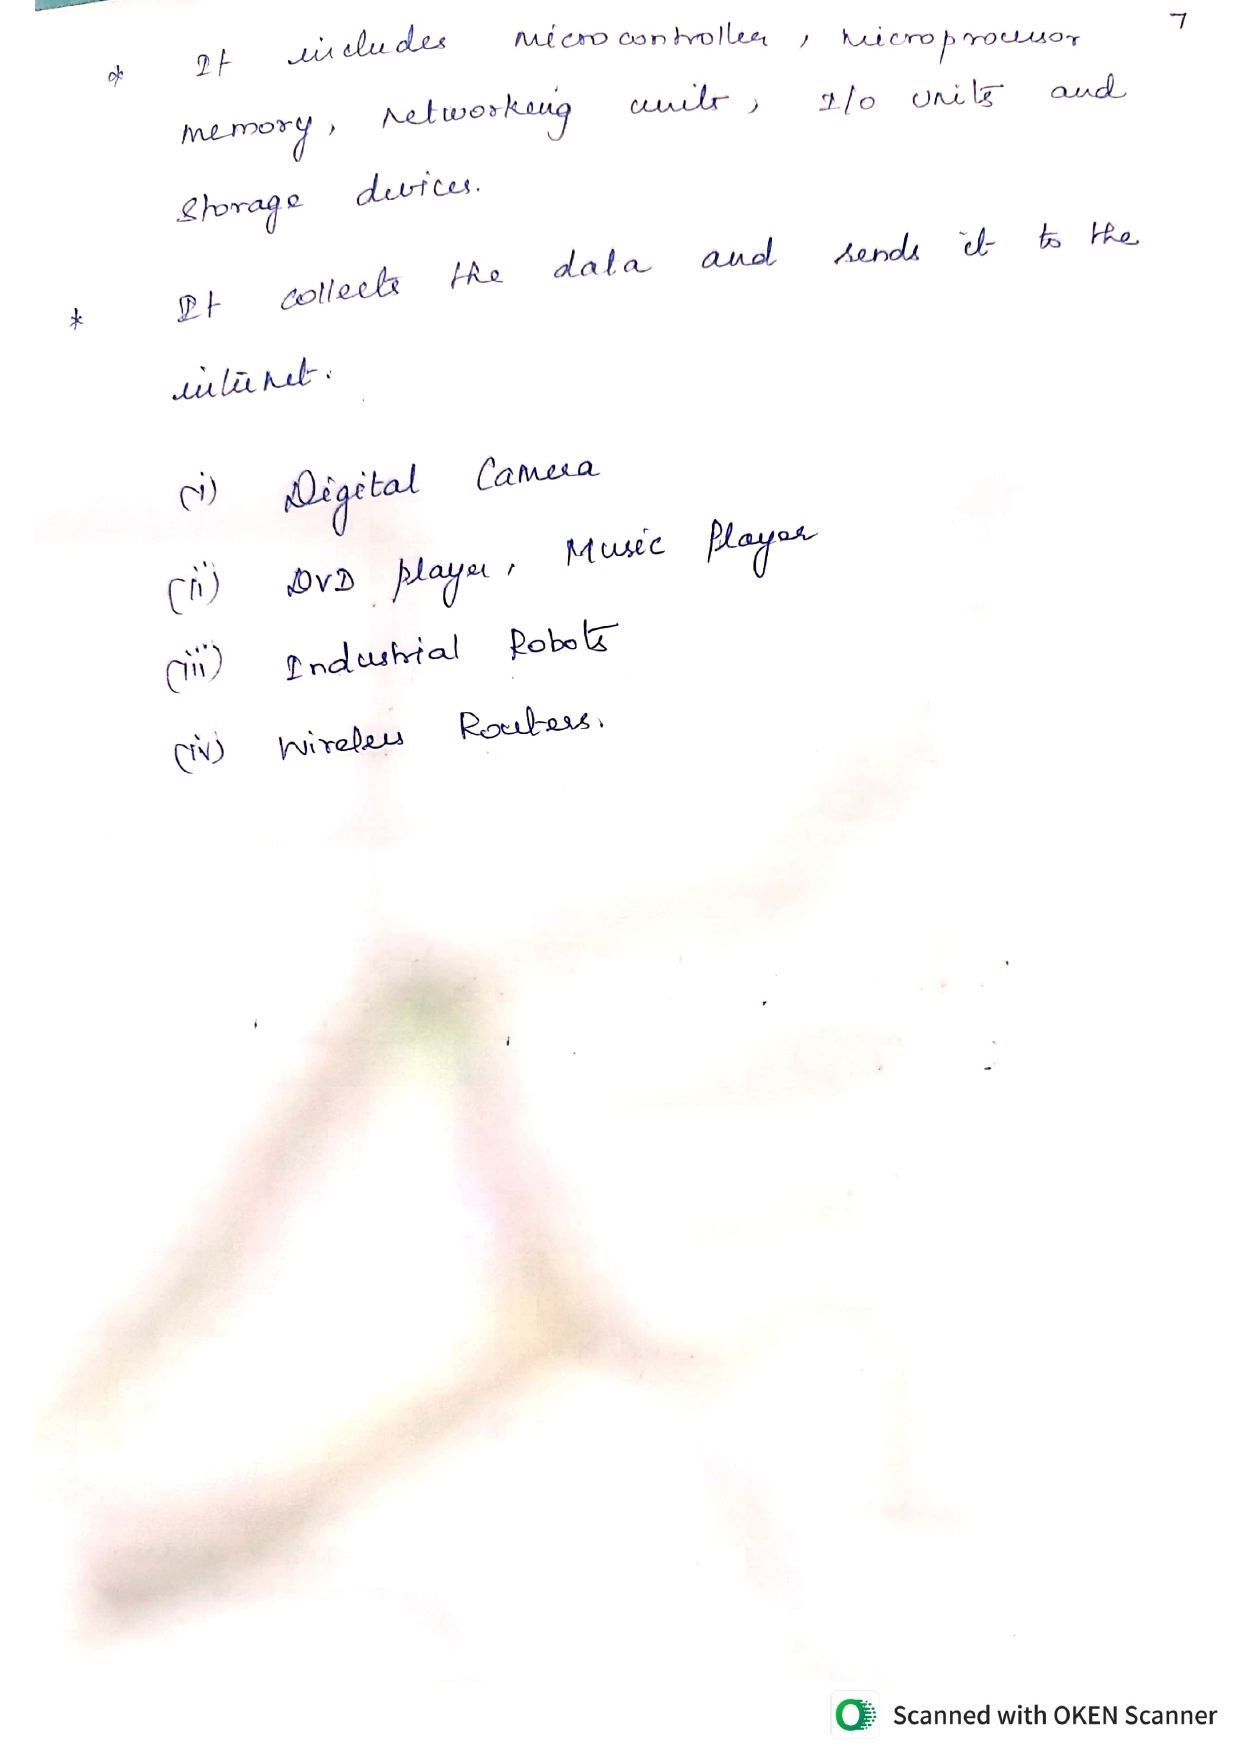 7
* It includes microcontroller, microprocessor
memory, networking units, I/O units and
storage devices.
* It collects the data and sends it to the
internet.
(i) Digital Camera
(ii) DVD player, Music Player
(iii) Industrial Robots
(iv) Wireless Routers.
Scanned with OKEN Scanner